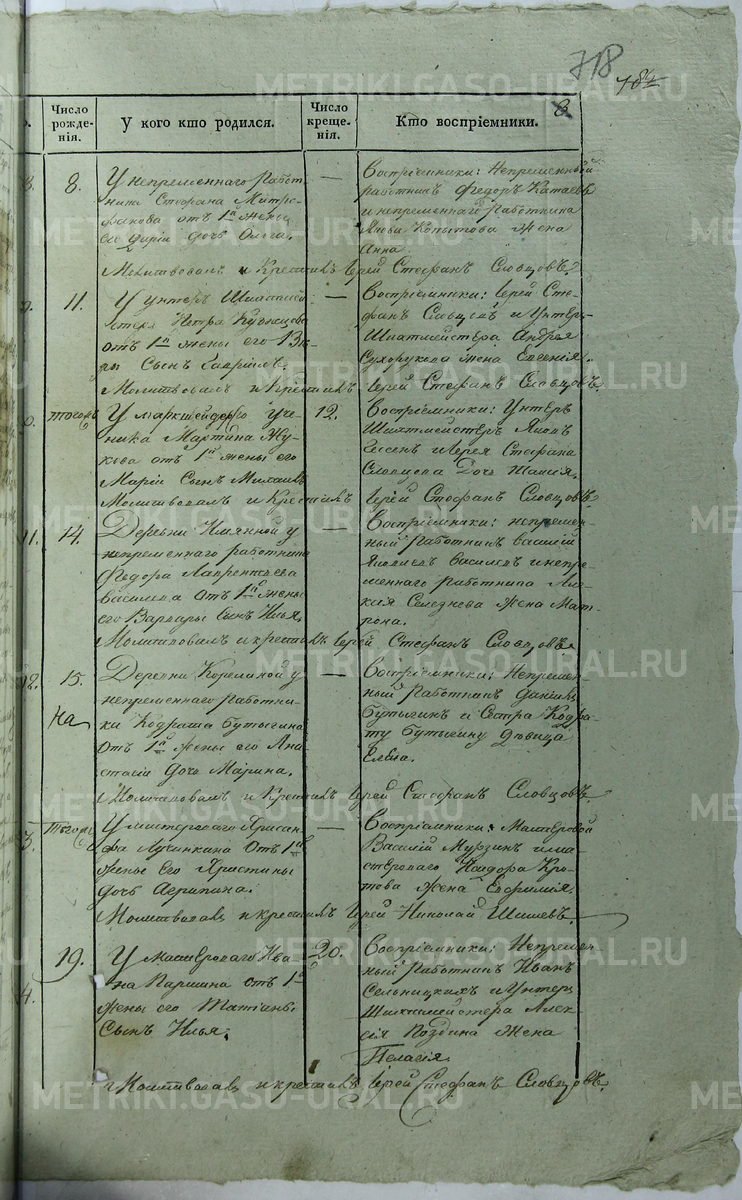 718
METRIKI.GASO-URAL.RU
Число рожде-нія.
У кого кто родился.
Число креще-нія.
Кто воспріемники.
8
8.
У непременнаго Работ-
ника Стефана Митро-
фанова отъ 1й жены
его Дарьи дочь Ольга.
—
Воспріемники: Непременный
работникъ Федоръ Катаевъ
и непременнаго Работника
Якова Копытова Жена
Анна
Молитвовалъ и Крестилъ Іерей Стефанъ Словцовъ.
11.
У унтеръ Шихтмей
стера Петра Кузнецова
отъ 1й жены его Вѣ
ры Сынъ Гавріилъ.
—
Воспріемники: Іерей Сте-
фанъ Словцовъ и Унтеръ
Шихтмейстера Андрея
Сухорукова жена Евгенія.
Молитвовалъ и Крестилъ Іерей Стефанъ Словцовъ.
тогожъ
У маркшейдерскаго уче-
ника Мартина Жу-
кова отъ 1й жены его
Маріи Сынъ Михаилъ
12.
Воспріемники: Унтеръ
Шихтмейстеръ Яковъ
и Іерея Стефана
Словцова Дочь
Молитвовалъ и Крестилъ Іерей Стефанъ Словцовъ.
11.
14.
Деревни у
непременнаго работника
Федора Лаврентьева
Василева отъ 1й жены
его Варвары Сынъ Илья.
—
Воспріемники: непремен-
ный Работникъ Василій
Василевъ и непре-
меннаго работника Лу-
кія Селезнева жена Мат-
рона.
Молитвовалъ и крестилъ Іерей Стефанъ Словцовъ
12.
15.
На
Деревни Корелиной у
непременнаго Работни-
ка Кодрата Бутыгина
отъ 1й жены его Ана
стасіи дочь Марина.
—
Воспріемники: Непремен-
ный Работникъ Данилъ
Бутыгинъ и Сестра Кодра-
ту Бутыгину дѣвица
Елена.
Молитвовалъ и Крестилъ Іерей Стефанъ Словцовъ.
3.
Тогожъ
У мастероваго Хрисан-
фа Лучинкина отъ 1й
жены Его Христины
дочь Агрипина.
—
Воспріемники: Мастеровой
Василій Мурзинъ и ма-
стероваго Исидора Кро-
това жена Евфимія.
Молитвовалъ и крестилъ Іерей Николай Шишевъ.
4.
19.
У мастероваго Ива
на Паршина отъ 1й
жены его Татіаны
Сынъ Илья.
20.
Воспріемники: Непремен-
ный Работникъ Иванъ
Сельницкихъ и Унтеръ
Шихтмейстера Алек-
сія Поздина жена
Пелагія.
Молитвовалъ и крестилъ Іерей Стефанъ Словцовъ.